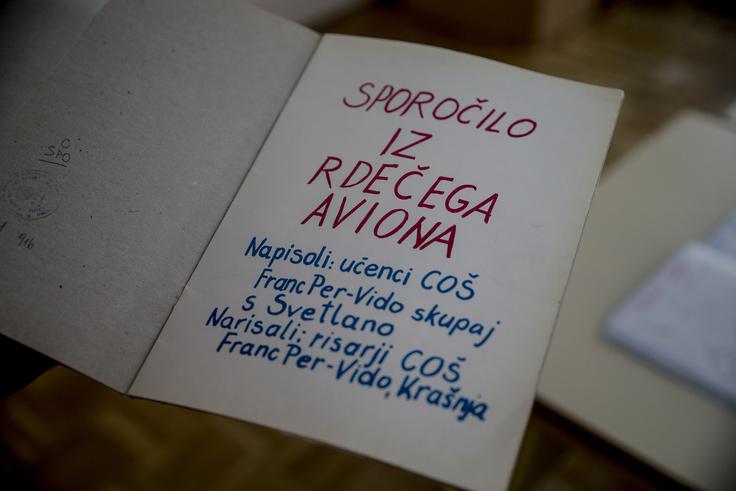 C
SPO
916
SPOROČILO
IZ
RDEČEGA
AVIONA
Napisoli: učenci COŠ
Franc Per-Vido skupaj
s Svetlano
Narisali: risarji COŠ
Franc Per-Vido, Krašnja